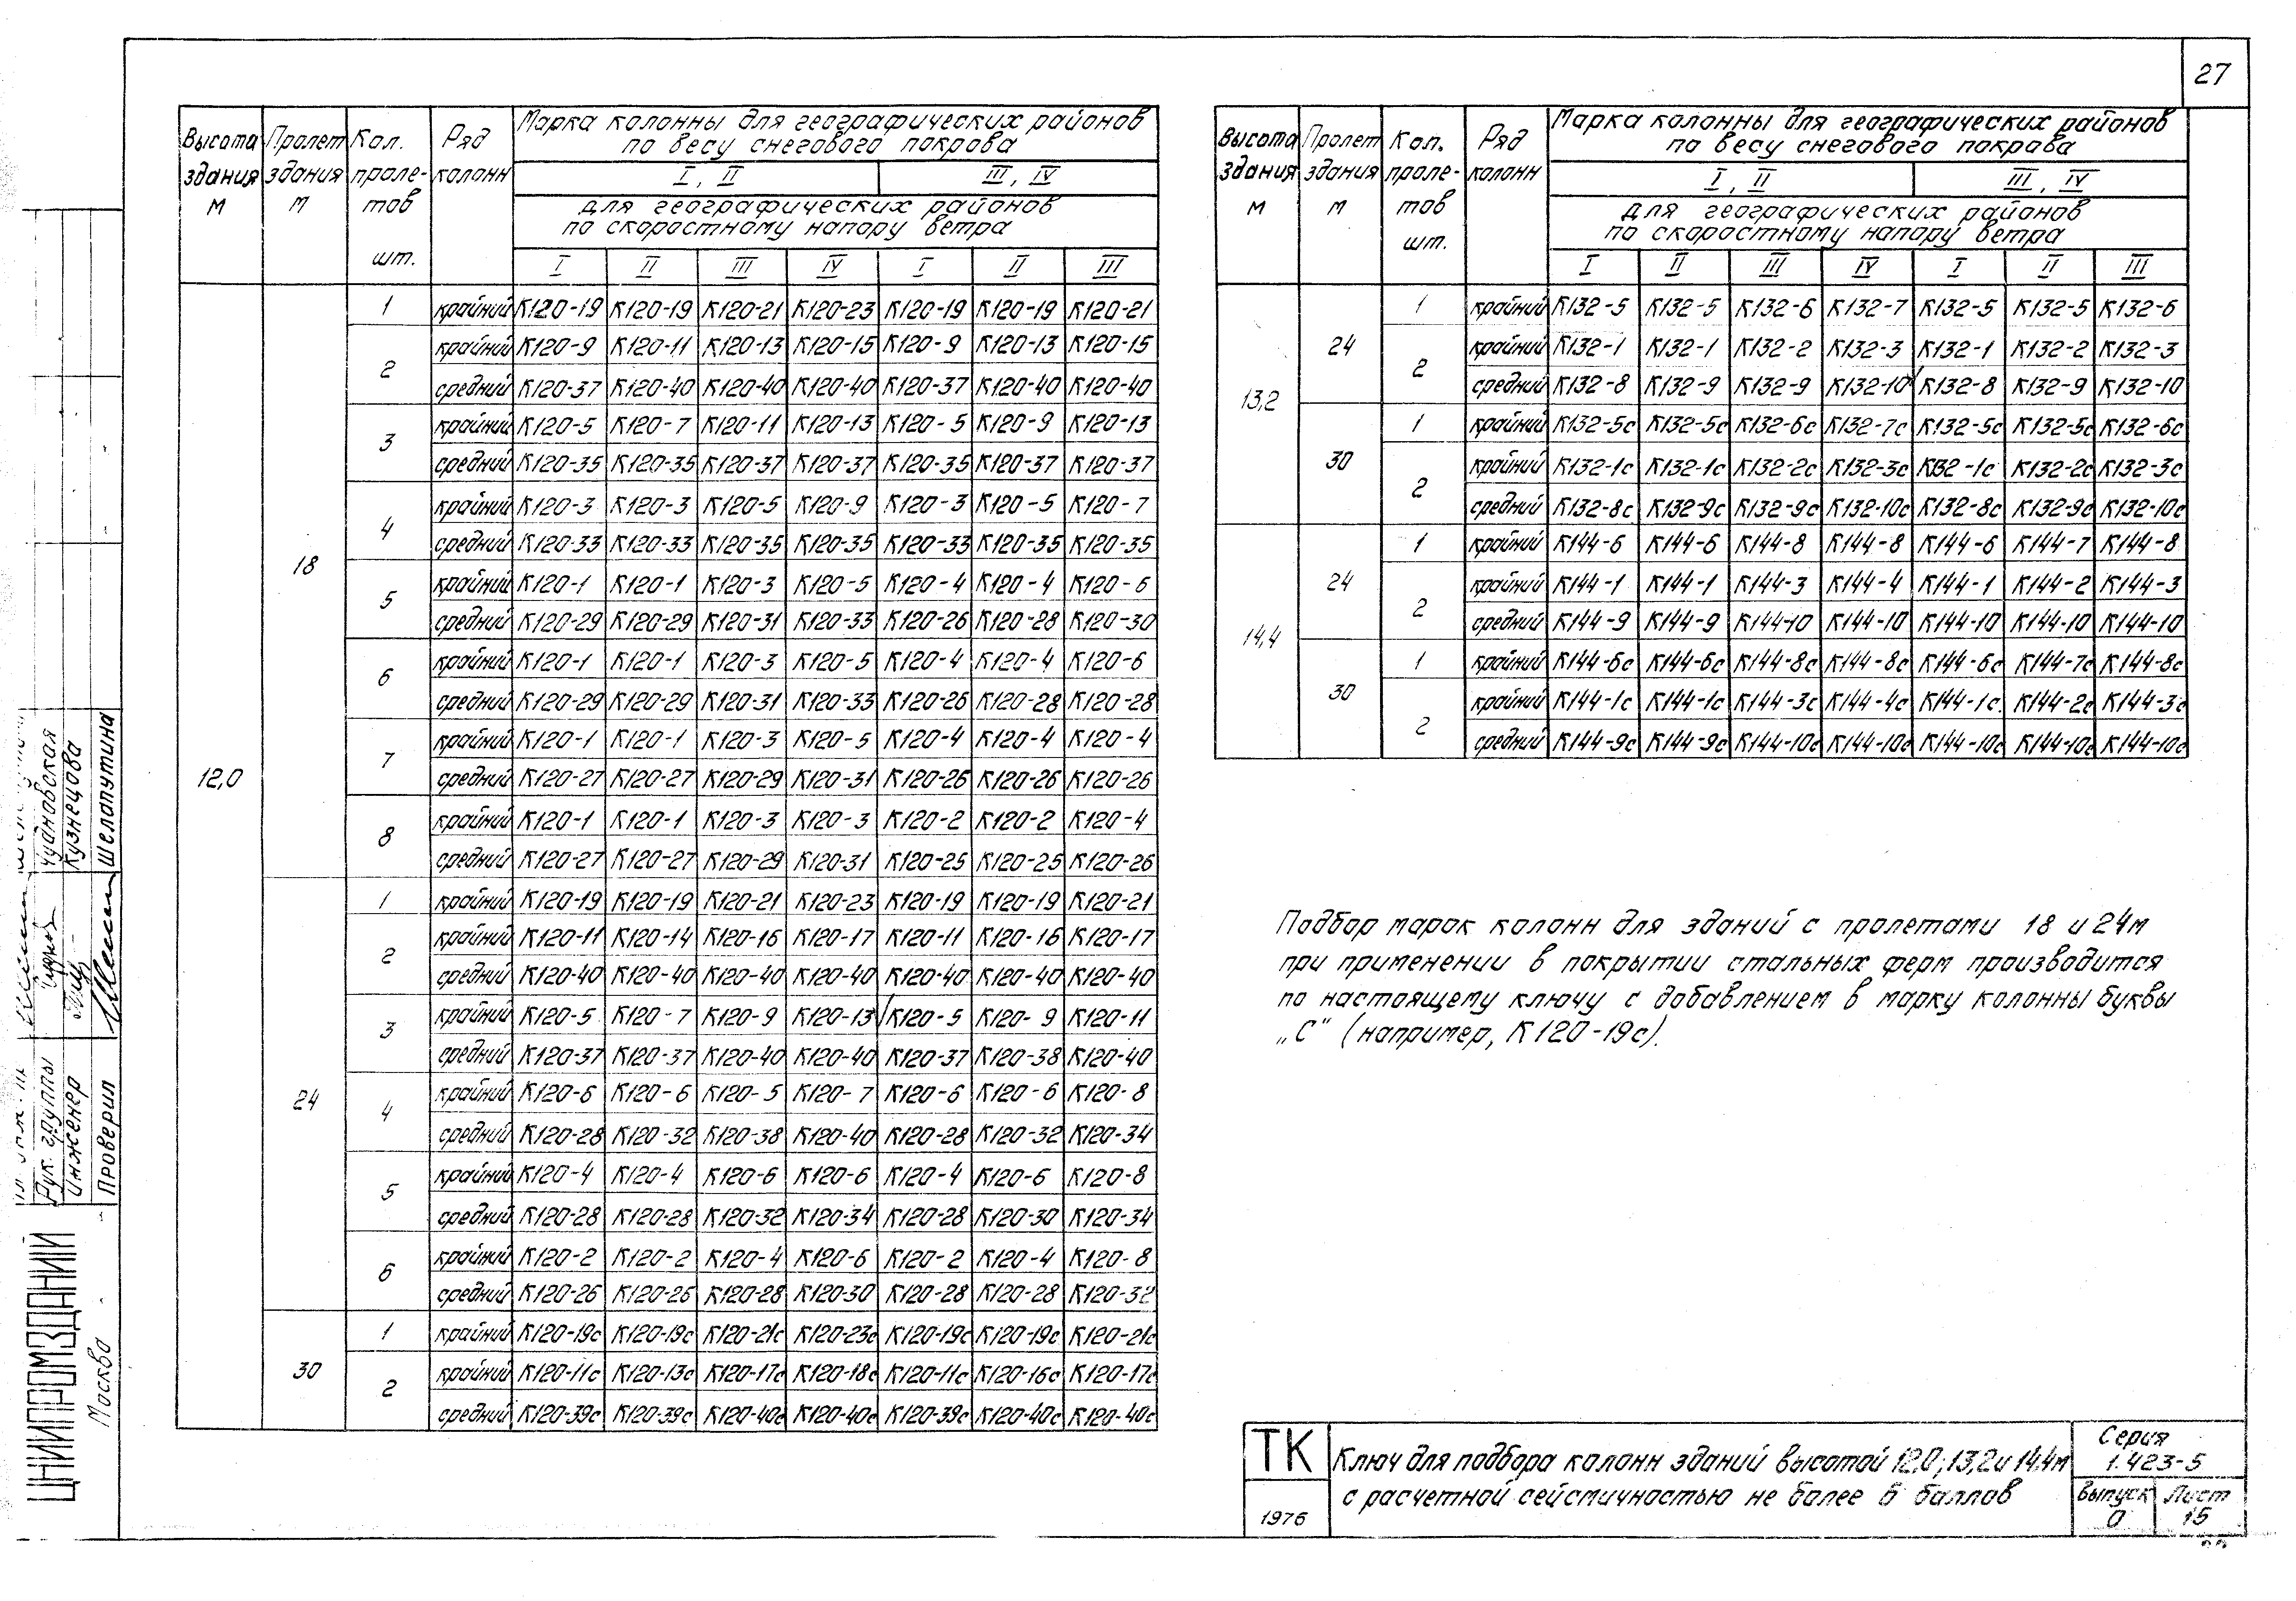 27
Высота здания м | Пролет здания м | Кол. проле- тов шт. | Ряд колонн | Марка колонны для географических районов по весу снегового покрова
I, II | III, IV
для географических районов по скоростному напору ветра
I | II | III | IV | I | II | III
12,0 | 18 | 1 | крайний | К120-19 | К120-19 | К120-21 | К120-23 | К120-19 | К120-19 | К120-21
2 | крайний | К120-9 | К120-11 | К120-13 | К120-15 | К120-9 | К120-13 | К120-15
средний | К120-37 | К120-40 | К120-40 | К120-40 | К120-37 | К120-40 | К120-40
3 | крайний | К120-5 | К120-7 | К120-11 | К120-13 | К120-5 | К120-9 | К120-13
средний | К120-35 | К120-35 | К120-37 | К120-37 | К120-35 | К120-37 | К120-37
4 | крайний | К120-3 | К120-3 | К120-5 | К120-9 | К120-3 | К120-5 | К120-7
средний | К120-33 | К120-33 | К120-35 | К120-35 | К120-33 | К120-35 | К120-35
5 | крайний | К120-1 | К120-1 | К120-3 | К120-5 | К120-4 | К120-4 | К120-6
средний | К120-29 | К120-29 | К120-31 | К120-33 | К120-26 | К120-28 | К120-30
6 | крайний | К120-1 | К120-1 | К120-3 | К120-5 | К120-4 | К120-4 | К120-6
средний | К120-29 | К120-29 | К120-31 | К120-33 | К120-26 | К120-28 | К120-28
7 | крайний | К120-1 | К120-1 | К120-3 | К120-5 | К120-4 | К120-4 | К120-4
средний | К120-27 | К120-27 | К120-29 | К120-31 | К120-26 | К120-26 | К120-26
8 | крайний | К120-1 | К120-1 | К120-3 | К120-3 | К120-2 | К120-2 | К120-4
средний | К120-27 | К120-27 | К120-29 | К120-31 | К120-25 | К120-25 | К120-26
24 | 1 | крайний | К120-19 | К120-19 | К120-21 | К120-23 | К120-19 | К120-19 | К120-21
2 | крайний | К120-11 | К120-14 | К120-16 | К120-17 | К120-11 | К120-16 | К120-17
средний | К120-40 | К120-40 | К120-40 | К120-40 | К120-40 | К120-40 | К120-40
3 | крайний | К120-5 | К120-7 | К120-9 | К120-13 | К120-5 | К120-9 | К120-11
средний | К120-37 | К120-37 | К120-40 | К120-40 | К120-37 | К120-38 | К120-40
4 | крайний | К120-6 | К120-6 | К120-5 | К120-7 | К120-6 | К120-6 | К120-8
средний | К120-28 | К120-32 | К120-38 | К120-40 | К120-28 | К120-32 | К120-34
5 | крайний | К120-4 | К120-4 | К120-6 | К120-6 | К120-4 | К120-6 | К120-8
средний | К120-28 | К120-28 | К120-32 | К120-34 | К120-28 | К120-30 | К120-34
6 | крайний | К120-2 | К120-2 | К120-4 | К120-6 | К120-2 | К120-4 | К120-8
средний | К120-26 | К120-26 | К120-28 | К120-30 | К120-28 | К120-28 | К120-32
30 | 1 | крайний | К120-19с | К120-19с | К120-21с | К120-23с | К120-19с | К120-19с | К120-21с
2 | крайний | К120-11с | К120-13с | К120-17с | К120-18с | К120-11с | К120-16с | К120-17с
средний | К120-39с | К120-39с | К120-40с | К120-40с | К120-39с | К120-40с | К120-40с
Высота здания м | Пролет здания м | Кол. проле- тов шт. | Ряд колонн | Марка колонны для географических районов по весу снегового покрова
I, II | III, IV
для географических районов по скоростному напору ветра
I | II | III | IV | I | II | III
13,2 | 24 | 1 | крайний | К132-5 | К132-5 | К132-6 | К132-7 | К132-5 | К132-5 | К132-6
2 | крайний | К132-1 | К132-1 | К132-2 | К132-3 | К132-1 | К132-2 | К132-3
средний | К132-8 | К132-9 | К132-9 | К132-10 | К132-8 | К132-9 | К132-10
30 | 1 | крайний | К132-5с | К132-5с | К132-6с | К132-7с | К132-5с | К132-5с | К132-6с
2 | крайний | К132-1с | К132-1с | К132-2с | К132-3с | К132-1с | К132-2с | К132-3с
средний | К132-8с | К132-9с | К132-9с | К132-10с | К132-8с | К132-9с | К132-10с
14,4 | 24 | 1 | крайний | К144-6 | К144-6 | К144-8 | К144-8 | К144-6 | К144-7 | К144-8
2 | крайний | К144-1 | К144-1 | К144-3 | К144-4 | К144-1 | К144-2 | К144-3
средний | К144-9 | К144-9 | К144-10 | К144-10 | К144-10 | К144-10 | К144-10
30 | 1 | крайний | К144-6с | К144-6с | К144-8с | К144-8с | К144-6с | К144-7с | К144-8с
2 | крайний | К144-1с | К144-1с | К144-3с | К144-4с | К144-1с | К144-2с | К144-3с
средний | К144-9с | К144-9с | К144-10с | К144-10с | К144-10с | К144-10с | К144-10с
Подбор марок колонн для зданий с пролетами 18 и 24м
при применении в покрытии стальных ферм производится
по настоящему ключу с добавлением в марку колонны буквы
„С" (например, К120-19с).
ТК
1976
Ключ для подбора колонн зданий высотой 12,0; 13,2 и 14.4м
с расчетной сейсмичностью не более 6 баллов
Серия
1.423-5
Выпуск
0
Лист
15
Рук. группы Чудновская
Инженер Кузнецова
Проверил Шелопутина
ЦНИИПРОМЗДАНИЙ
Москва